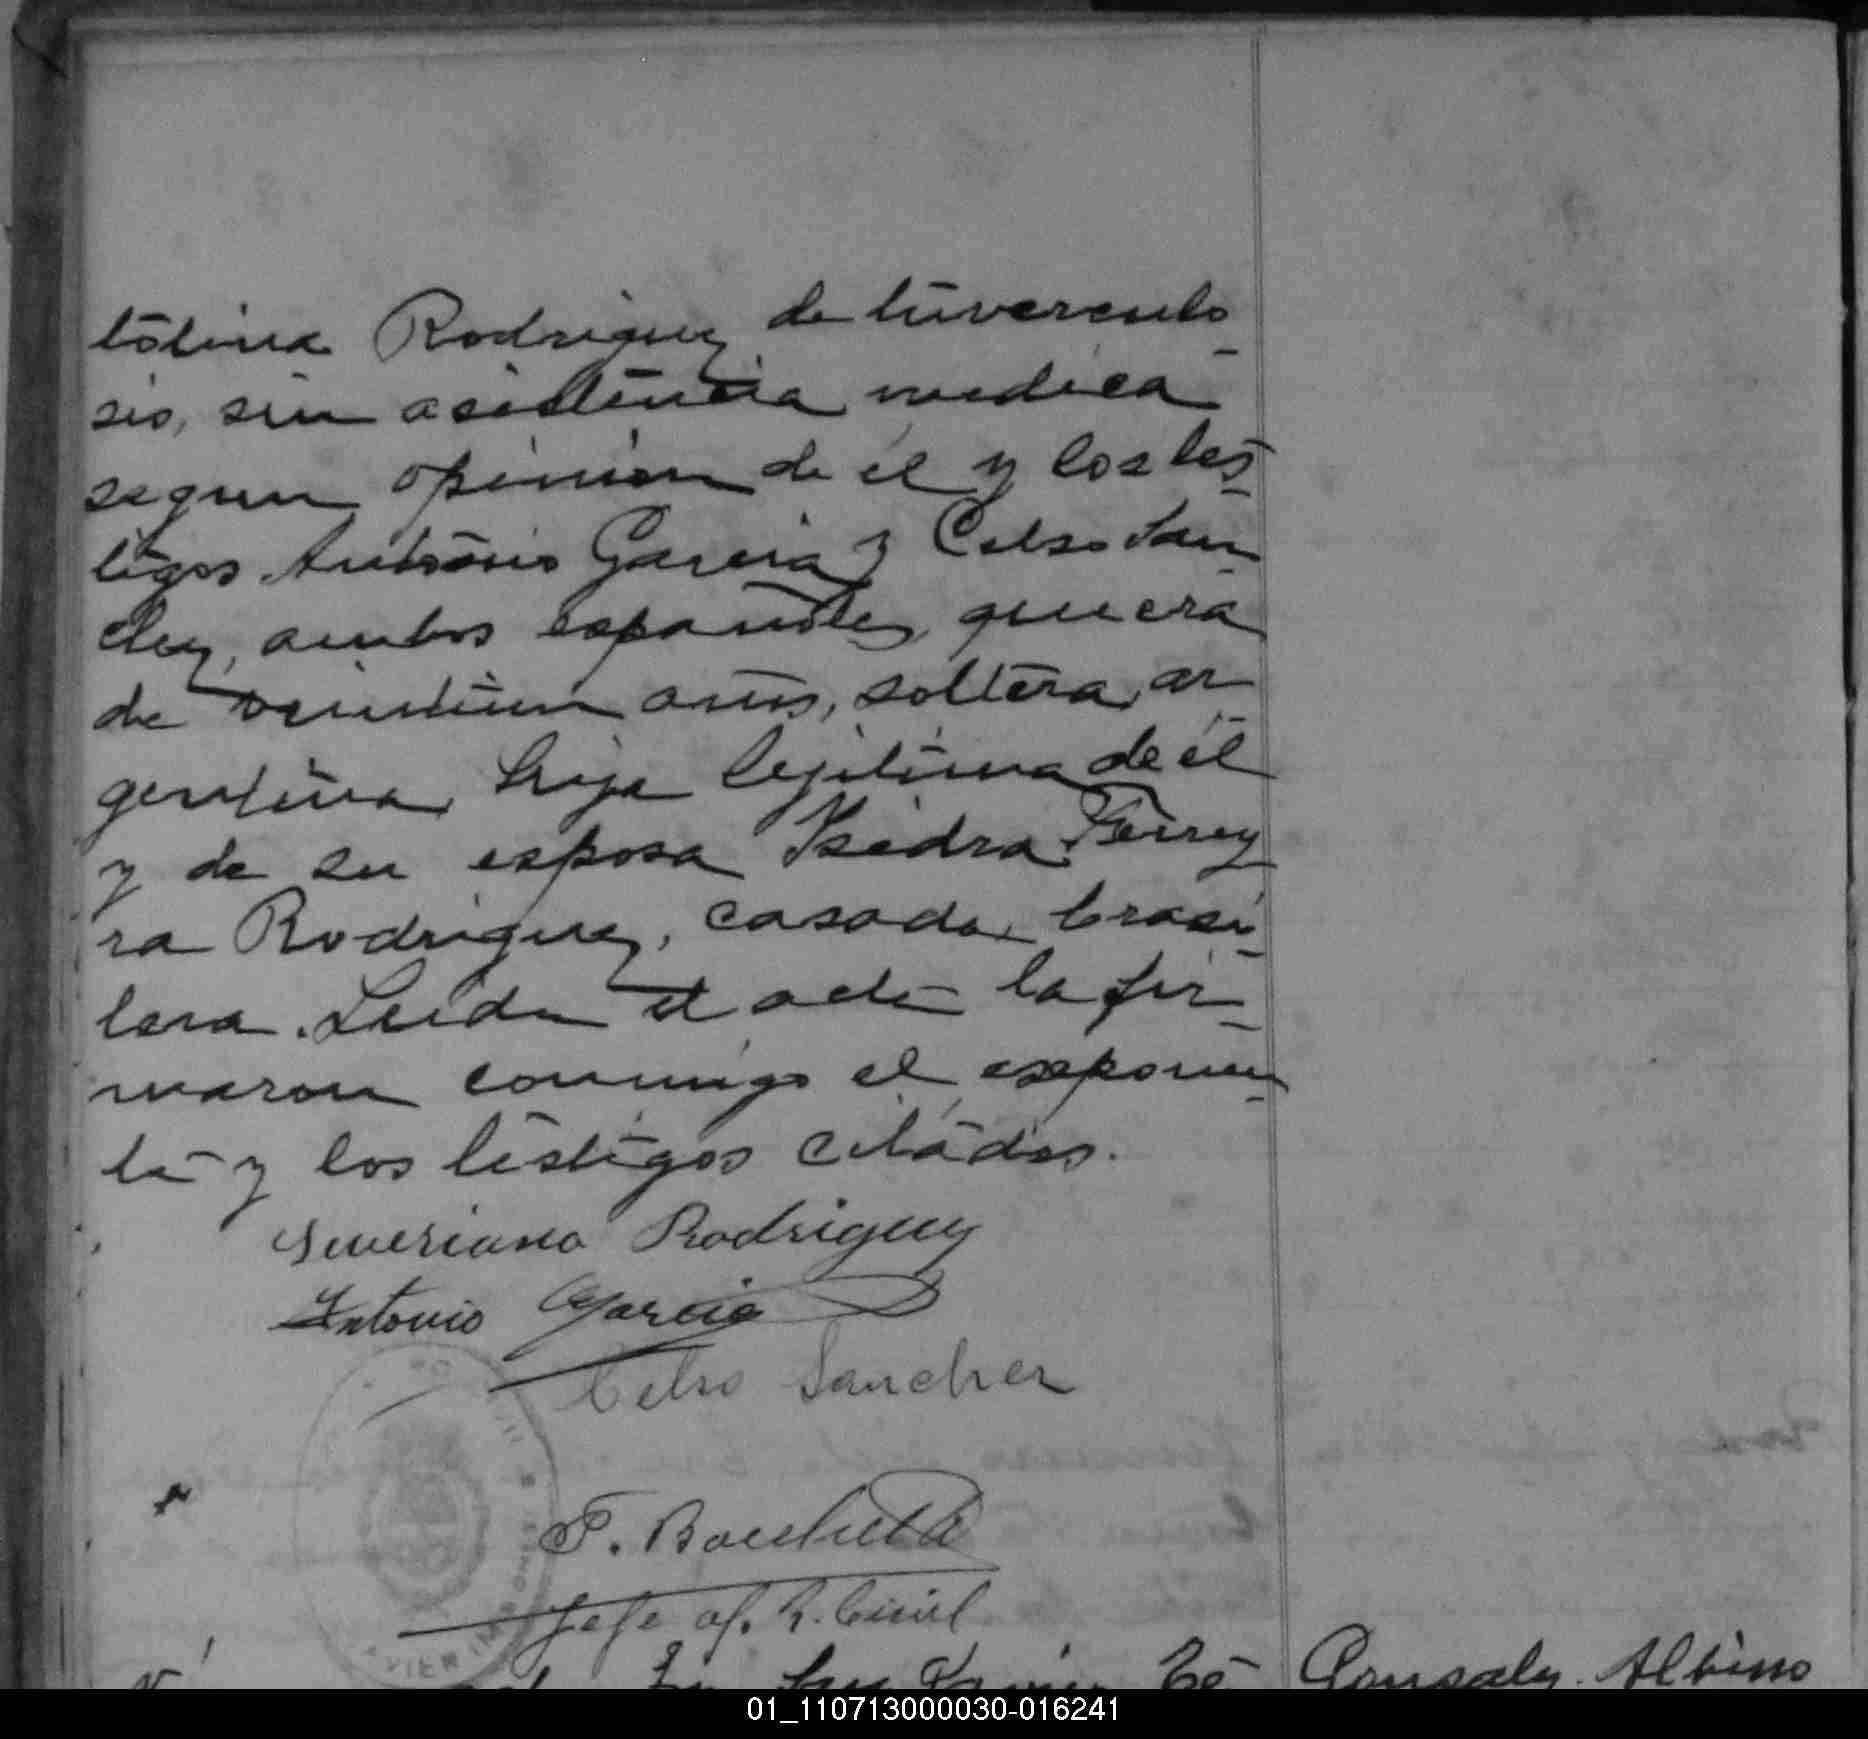 tolina Rodriguez de tuverculo-
sis, sin asistencia medica
segun opinion de el y los tes-
tigos Antonio Garcia y Celso San-
chez, ambos españoles, que era
de veintiun años, soltera, ar-
gentina, hija lejitima de el
y de su esposa Ysidra Ferrey
ra Rodriguez, casada, brasi-
lera. Leida el acta la fir-
maron conmigo el exponen-
te y los testigos citados.
Severiano Rodriguez
Antonio Garcia
Celso Sanchez
Jefe of. R. Civil
En San Javier Te
Gonsalez Albino
01_110713000030-016241